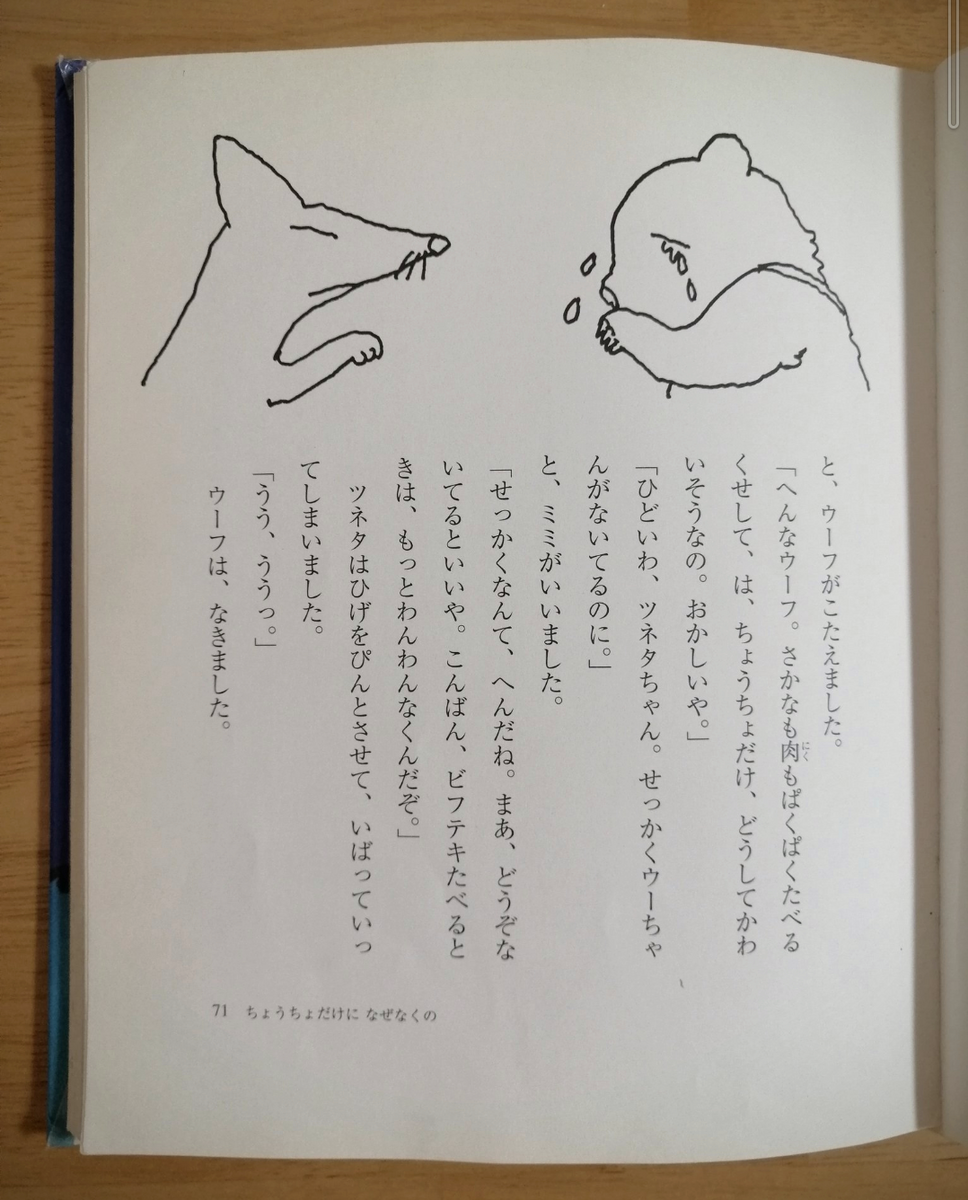 と、ウーフがこたえました。
「へんなウーフ。さかなも肉もぱくぱくたべる
にく
くせして、は、ちょうちょだけ、どうしてかわ
いそうなの。おかしいや。」
「ひどいわ、ツネタちゃん。せっかくウーちゃ
んがないてるのに。」
と、ミミがいいました。
「せっかくなんて、へんだね。まあ、どうぞな
いてるといいや。こんばん、ビフテキたべると
きは、もっとわんわんなくんだぞ。」
ツネタはひげをぴんとさせて、いばっていっ
てしまいました。
「うう、ううっ。」
ウーフは、なきました。
71 ちょうちょだけに なぜなくの